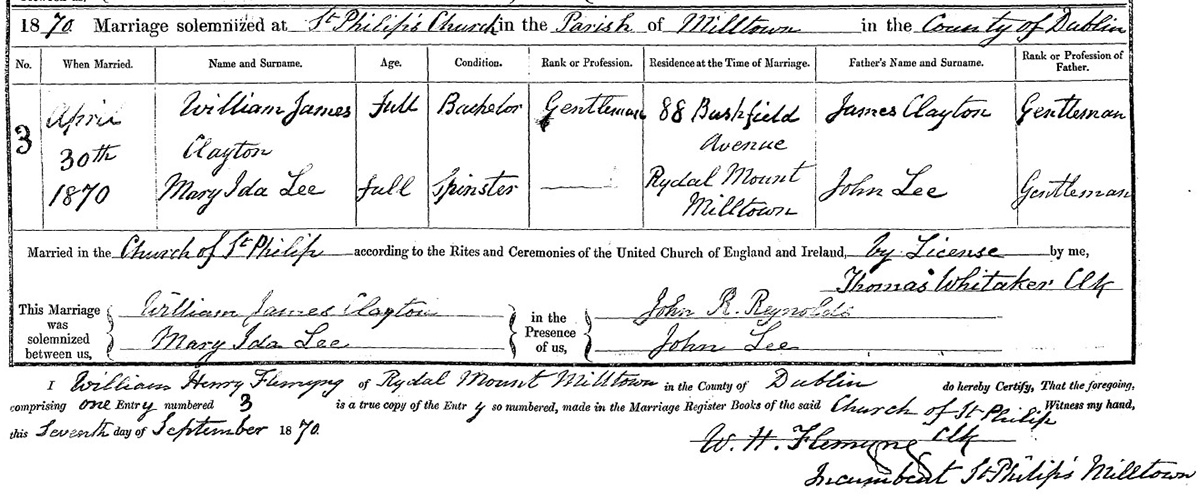 1870. Marriage solemnized at St Philip's Church in the Parish of Milltown in the County of Dublin
No. When Married. Name and Surname. Age. Condition. Rank or Profession. Residence at the Time of Marriage. Father's Name and Surname. Rank or Profession of Father.
3 April 30th 1870 William James Clayton Full Bachelor Gentleman 88 Bushfield Avenue James Clayton Gentleman
Mary Ida Lee full Spinster Rydal Mount Milltown John Lee Gentleman
Married in the Church of St Philip according to the Rites and Ceremonies of the United Church of England and Ireland, by License by me,
Thomas Whitaker Clk
This Marriage was solemnized between us, William James Clayton in the Presence of us, John R. Reynolds
Mary Ida Lee John Lee
I William Henry Flemyng of Rydal Mount Milltown in the County of Dublin do hereby Certify, That the foregoing,
comprising one Entry numbered 3 is a true copy of the Entry so numbered, made in the Marriage Register Books of the said Church of St Philip Witness my hand,
this Seventh day of September 1870.
W. H. Flemyng Clk
Incumbent St Philip's Milltown